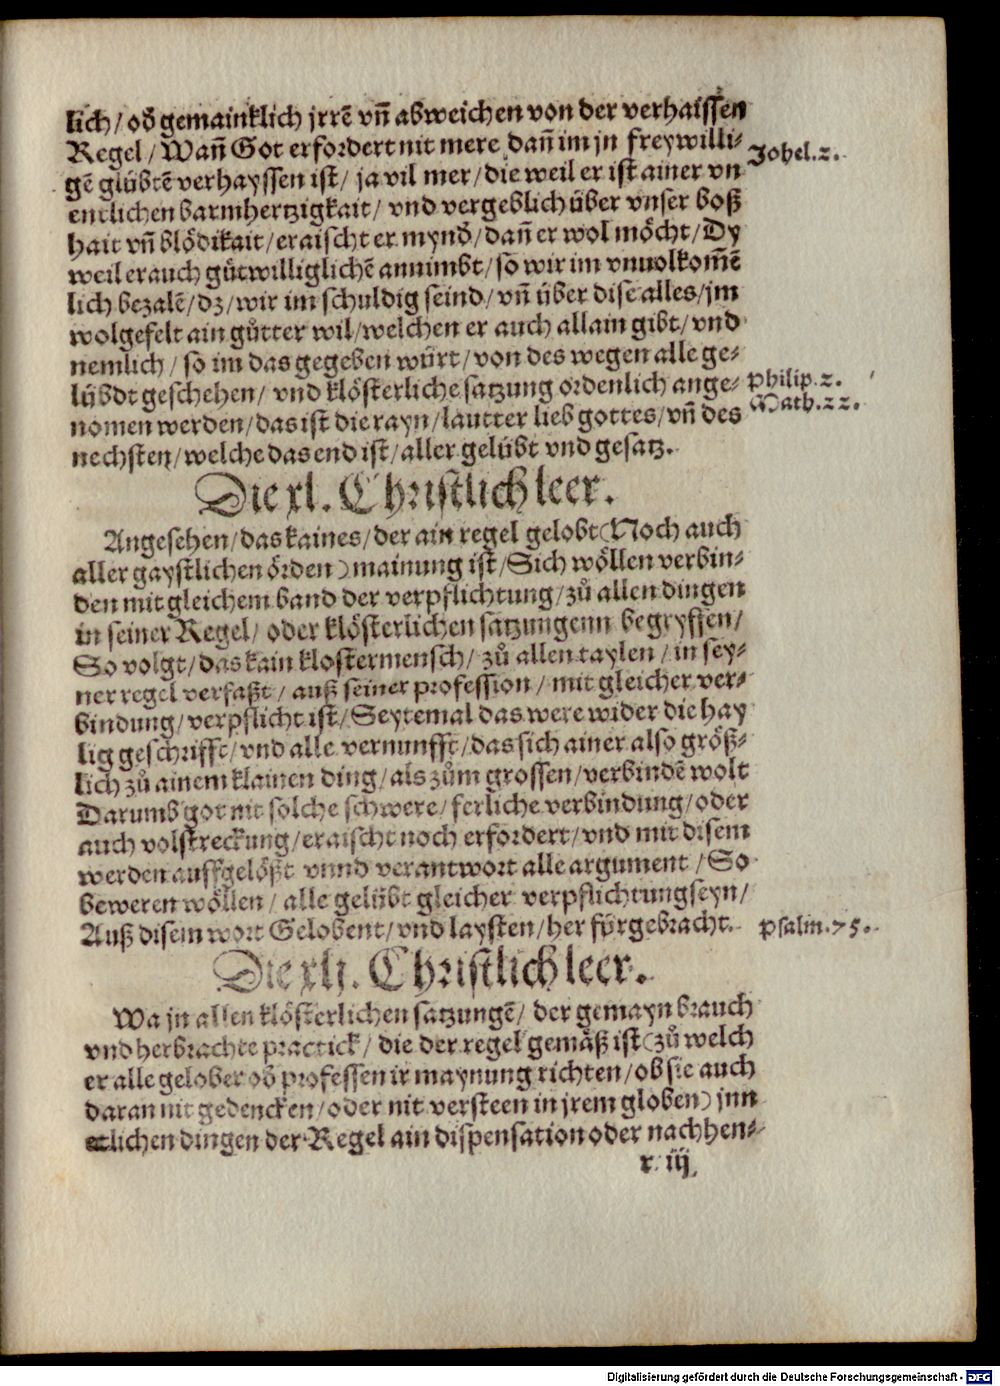 lich / od̄ gemainklich jrrē vn̄ abweichen von der verhaissen
Regel / Wan̄ Got erfordert nit mere dan̄ im jn freywilli-
gē glübtē verhayssen ist / ja vil mer / die weil er ist ainer vn
Johel.2.
entlichen barmhertzigkait / vnd vergeblich über vnser boß
hait vn̄ blödikait / eraischt er mynd̄ / dan̄ er wol möcht / Dy
weil er auch gůtwilliglichē annimbt / so wir im vnuolkom̄ē
lich bezalē / dz / wir im schuldig seind / vn̄ über dise alles / jm
wolgefelt ain gůtter wil / welchen er auch allain gibt / vnd
nemlich / so im das gegeben würt / von des wegen alle ge-
lübdt geschehen / vnd klösterliche satzung ordenlich ange-
Philip.2.
nomen werden / das ist die rayn / lautter lieb gottes / vn̄ des
Math.22.
nechsten / welche das end ist / aller gelübt vnd gesatz.
Die xl. Christlich leer.
Angesehen / das kaines / der ain regel gelobt (Noch auch
aller gaystlichen örden) mainung ist / Sich wöllen verbin-
den mit gleichem band der verpflichtung / zů allen dingen
in seiner Regel / oder klösterlichen satzungenn begryffen /
So volgt / das kain klostermensch / zů allen taylen / in sey-
ner regel verfaßt / auß seiner profession / mit gleicher ver-
bindung / verpflicht ist / Seytemal das were wider die hay
lig geschrifft / vnd alle vernunfft / das sich ainer also größ-
lich zů ainem klainen ding / als zům grossen / verbindē wolt
Darumb got nit solche schwere / ferliche verbindung / oder
auch volstreckung / eraischt noch erfordert / vnd mit disem
werden auffgelößt vnnd verantwort alle argument / So
beweren wöllen / alle gelübt gleicher verpflichtung seyn /
Auß disem wort Gelobent / vnd laysten / her fürgebracht.
Psalm.75.
Die xlj. Christlich leer.
Wa jn allen klösterlichen satzungē / der gemayn brauch
vnd herbrachte practick / die der regel gemäß ist (zů welch
er alle gelober od̄ professen ir maynung richten / ob sie auch
daran nit gedencken / oder nit versteen in jrem globen) jnn
etlichen dingen der Regel ain dispensation oder nachhen-
r iij
Digitalisierung gefördert durch die Deutsche Forschungsgemeinschaft - DFG